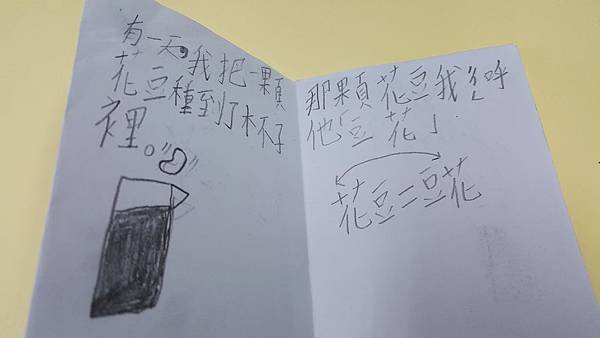 有一天,我把一顆
花豆種到了杯子
裡。
那顆花豆我ㄔㄥ呼
他「豆花」.
花豆=豆花